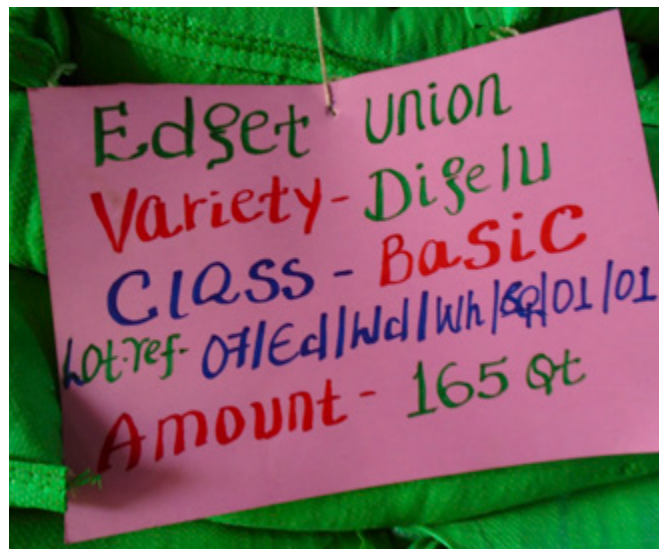 Edget Union
Variety - Digelu
Class - Basic
Lot.ref. 07/Ed/Wd/Wh/ /01/01
Amount - 165 Qt